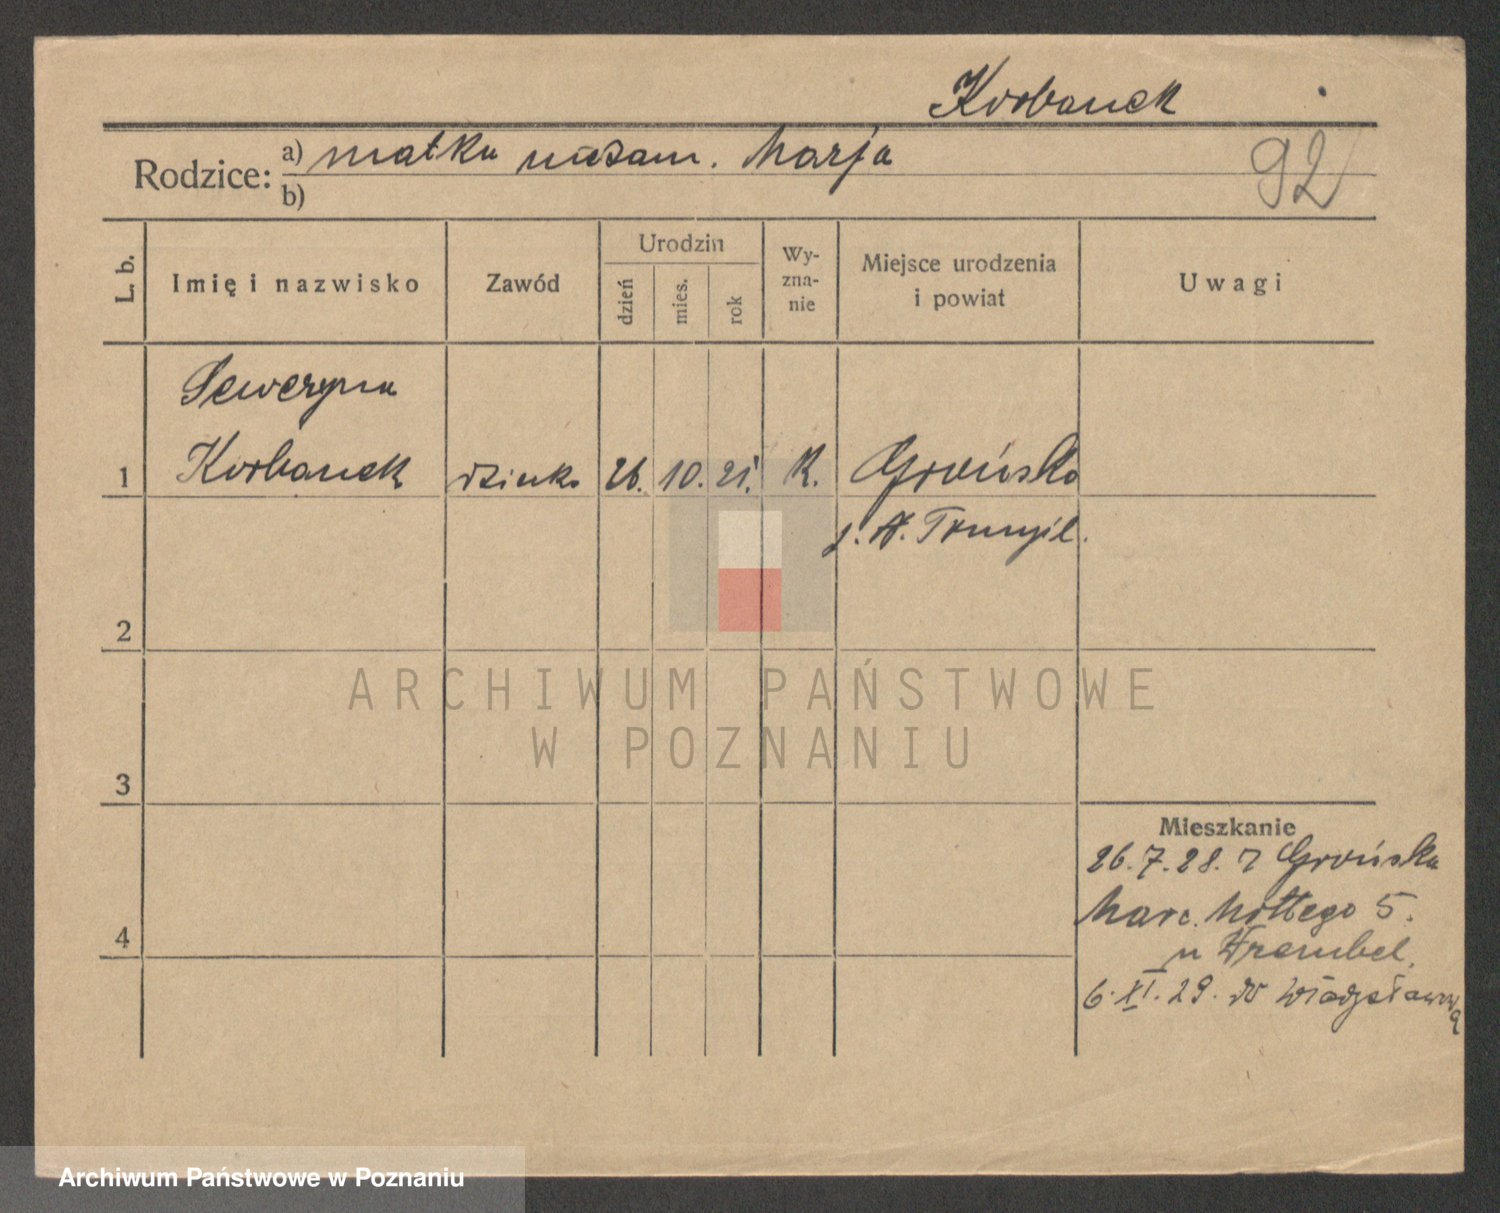 Korbanek
Rodzice: a) matka niezam. Marja
b)
92
L. b.
Imię i nazwisko
Zawód
Urodzin
dzień
mies.
rok
Wy-
zna-
nie
Miejsce urodzenia
i powiat
Uwagi
Seweryna
1 Korbanek dziecko 26. 10. 21. K. Grońsko
p. N. Tomyśl.
2
3
4
Mieszkanie
26.7.28. z Grońska
Marc. Mottego 5.
u Wrembel.
6.XI.29. do
ARCHIWUM PAŃSTWOWE
W POZNANIU
Archiwum Państwowe w Poznaniu